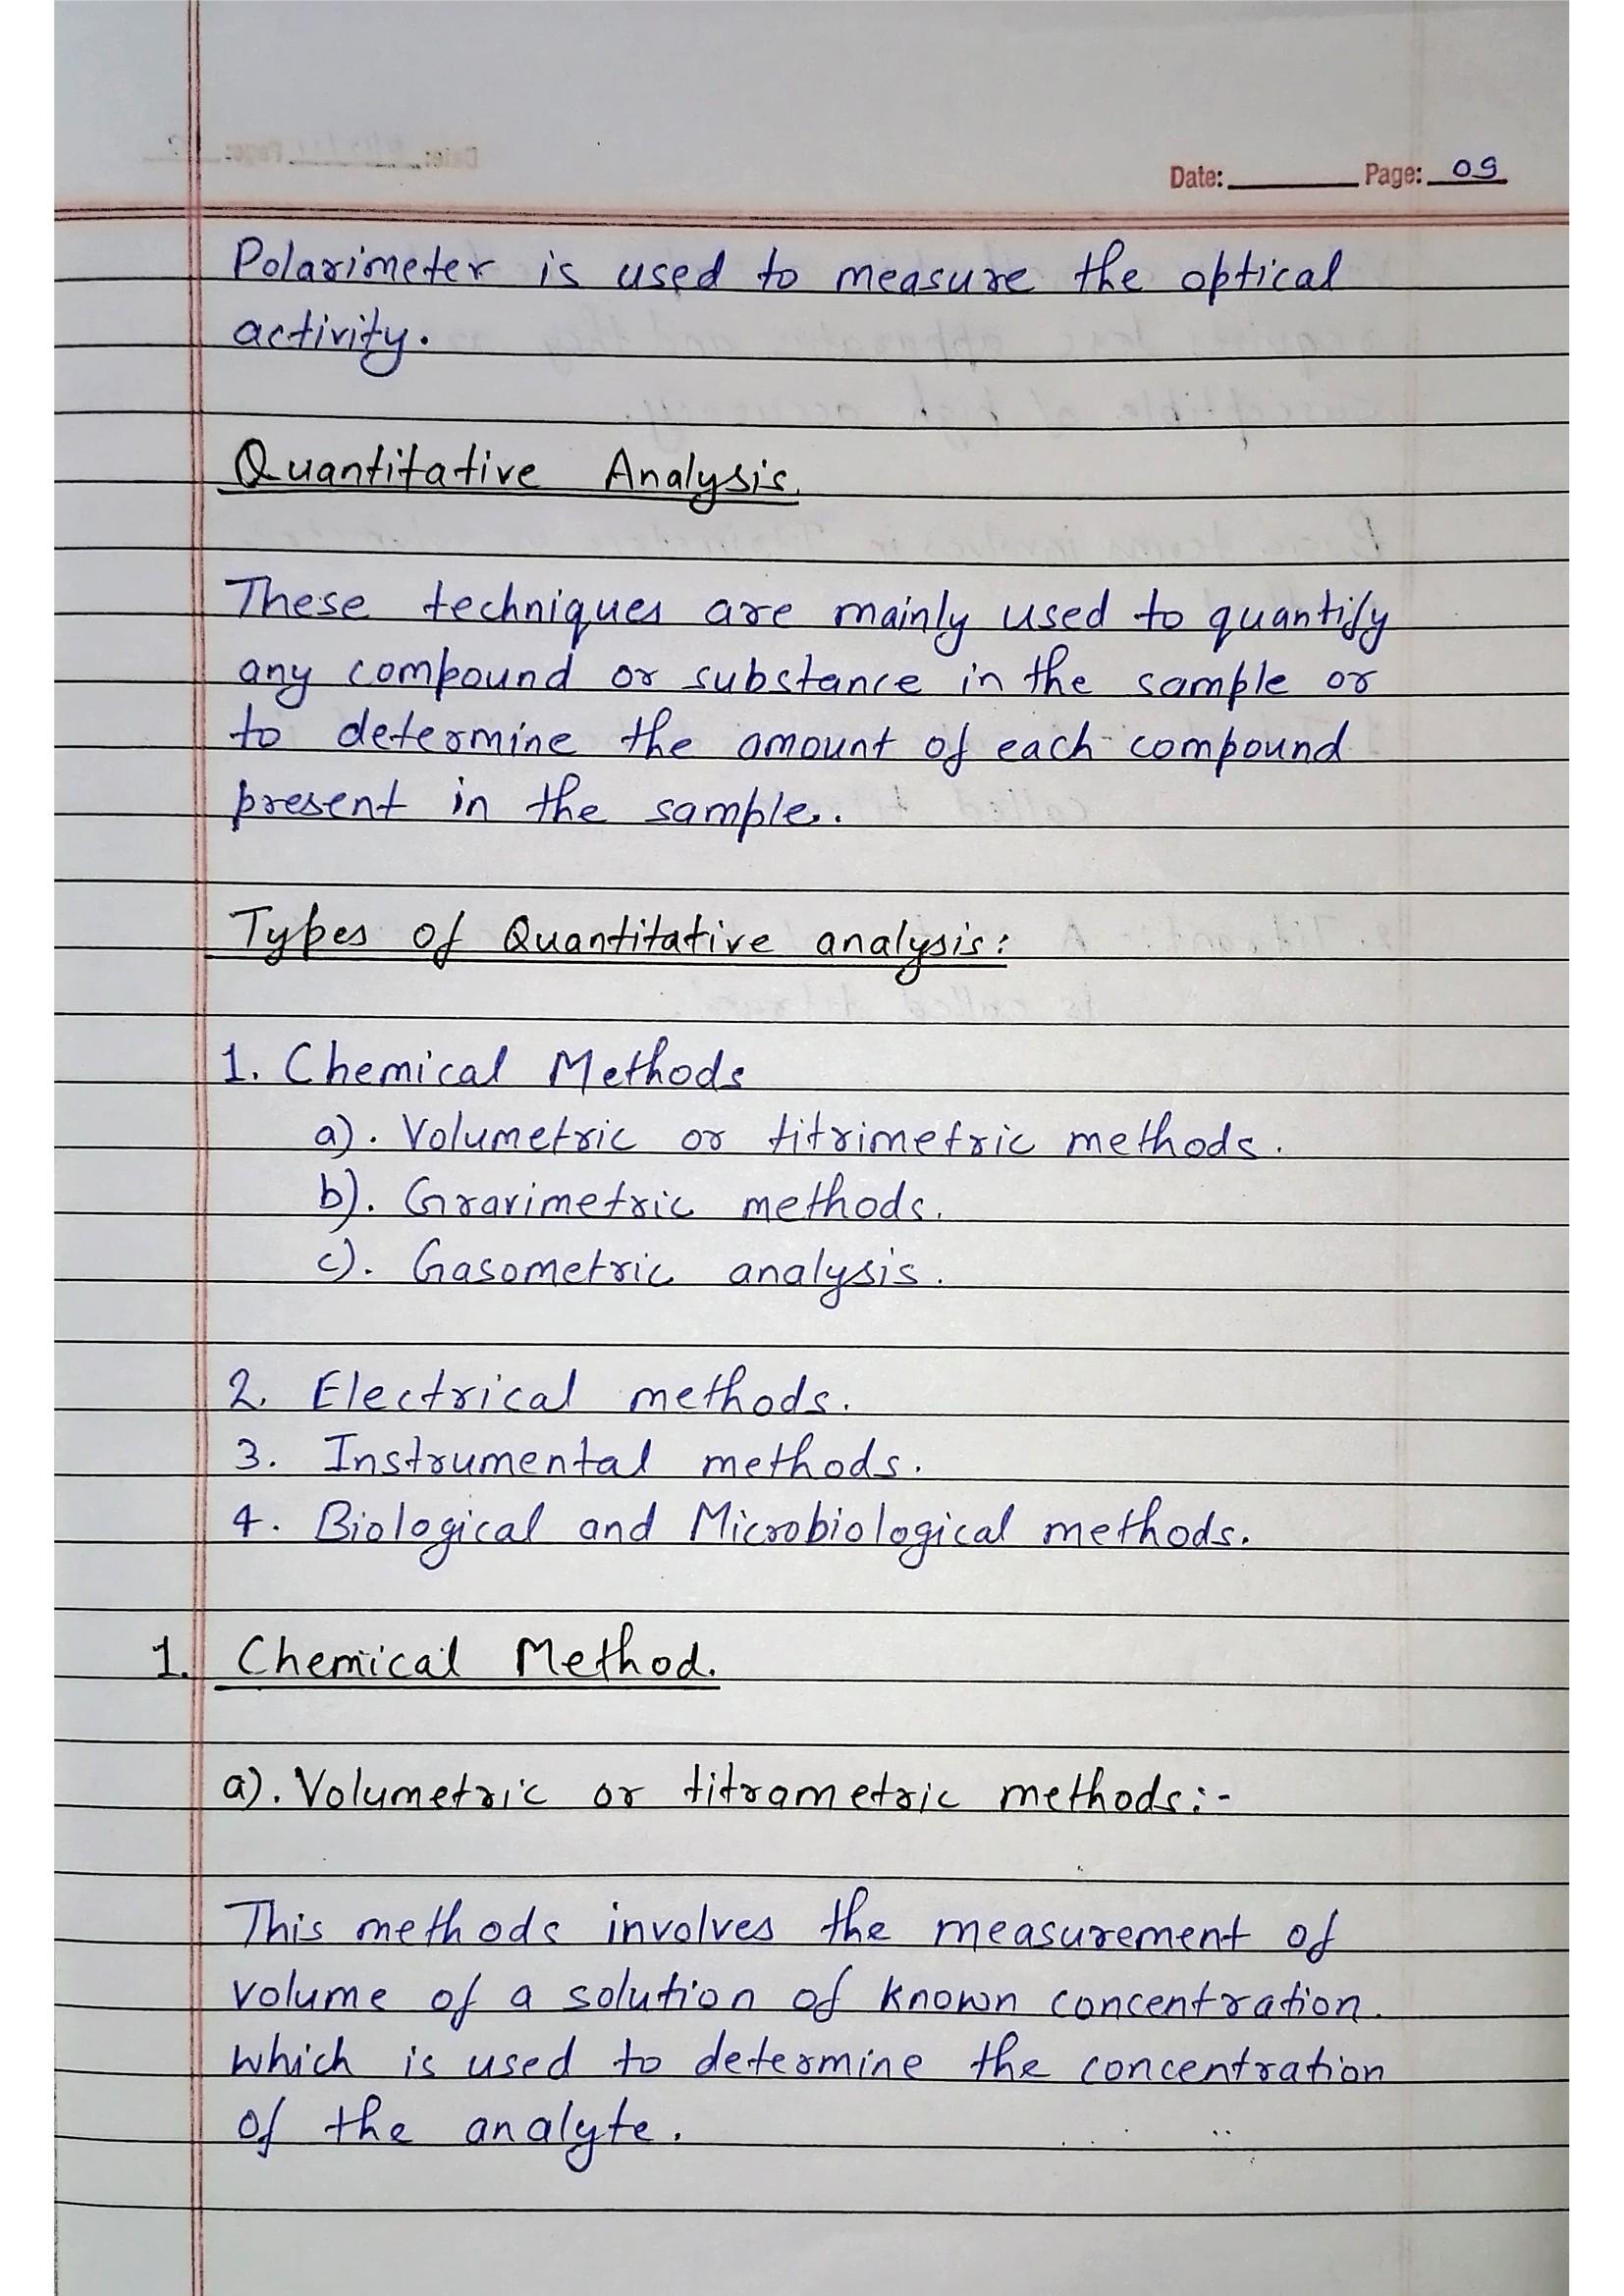 Date: Page: 09
Polarimeter is used to measure the optical
activity.
Quantitative Analysis.
These techniques are mainly used to quantify
any compound or substance in the sample or
to determine the amount of each compound
present in the sample.
Types of Quantitative analysis:
1. Chemical Methods
a). Volumetric or titrimetric methods.
b). Gravimetric methods.
c). Gasometric analysis.
2. Electrical methods.
3. Instrumental methods.
4. Biological and Microbiological methods.
1. Chemical Method.
a). Volumetric or titrametric methods:-
This methods involves the measurement of
volume of a solution of known concentration.
which is used to determine the concentration
of the analyte.